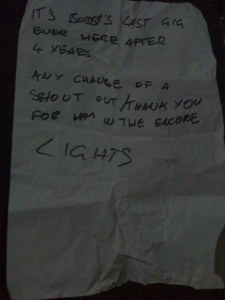 IT'S LAST GIG
EVER HERE AFTER
4 YEARS.
ANY CHANCE OF A
SHOUT OUT/THANK YOU
FOR HIM IN THE ENCORE
LIGHTS